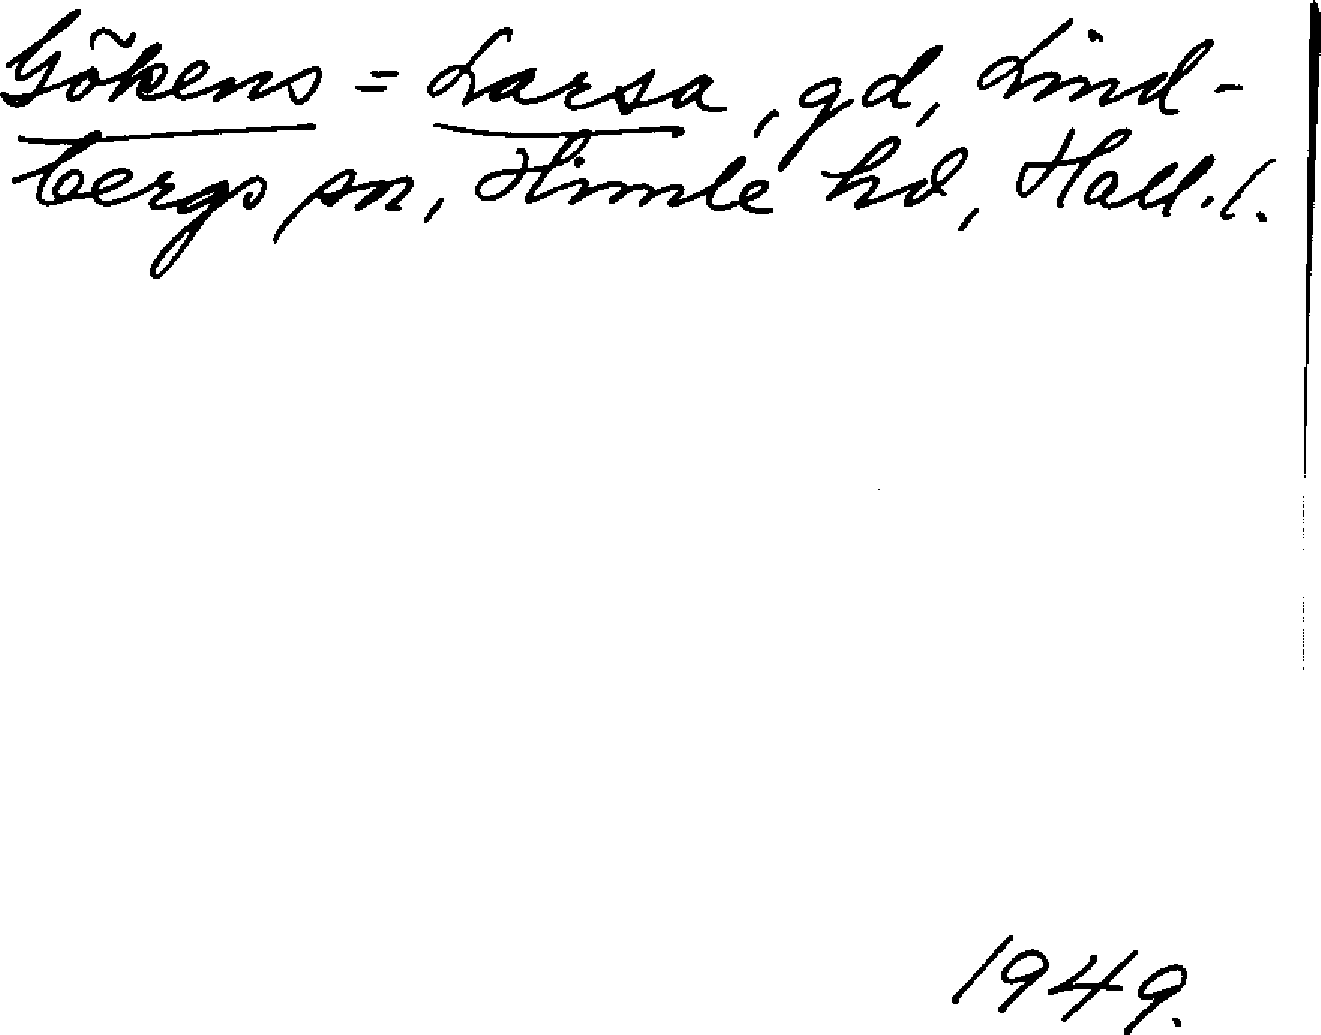 Gökens = Larsa, gd, Lind-
bergs sn, Himle hd, Hall. l.
1949.